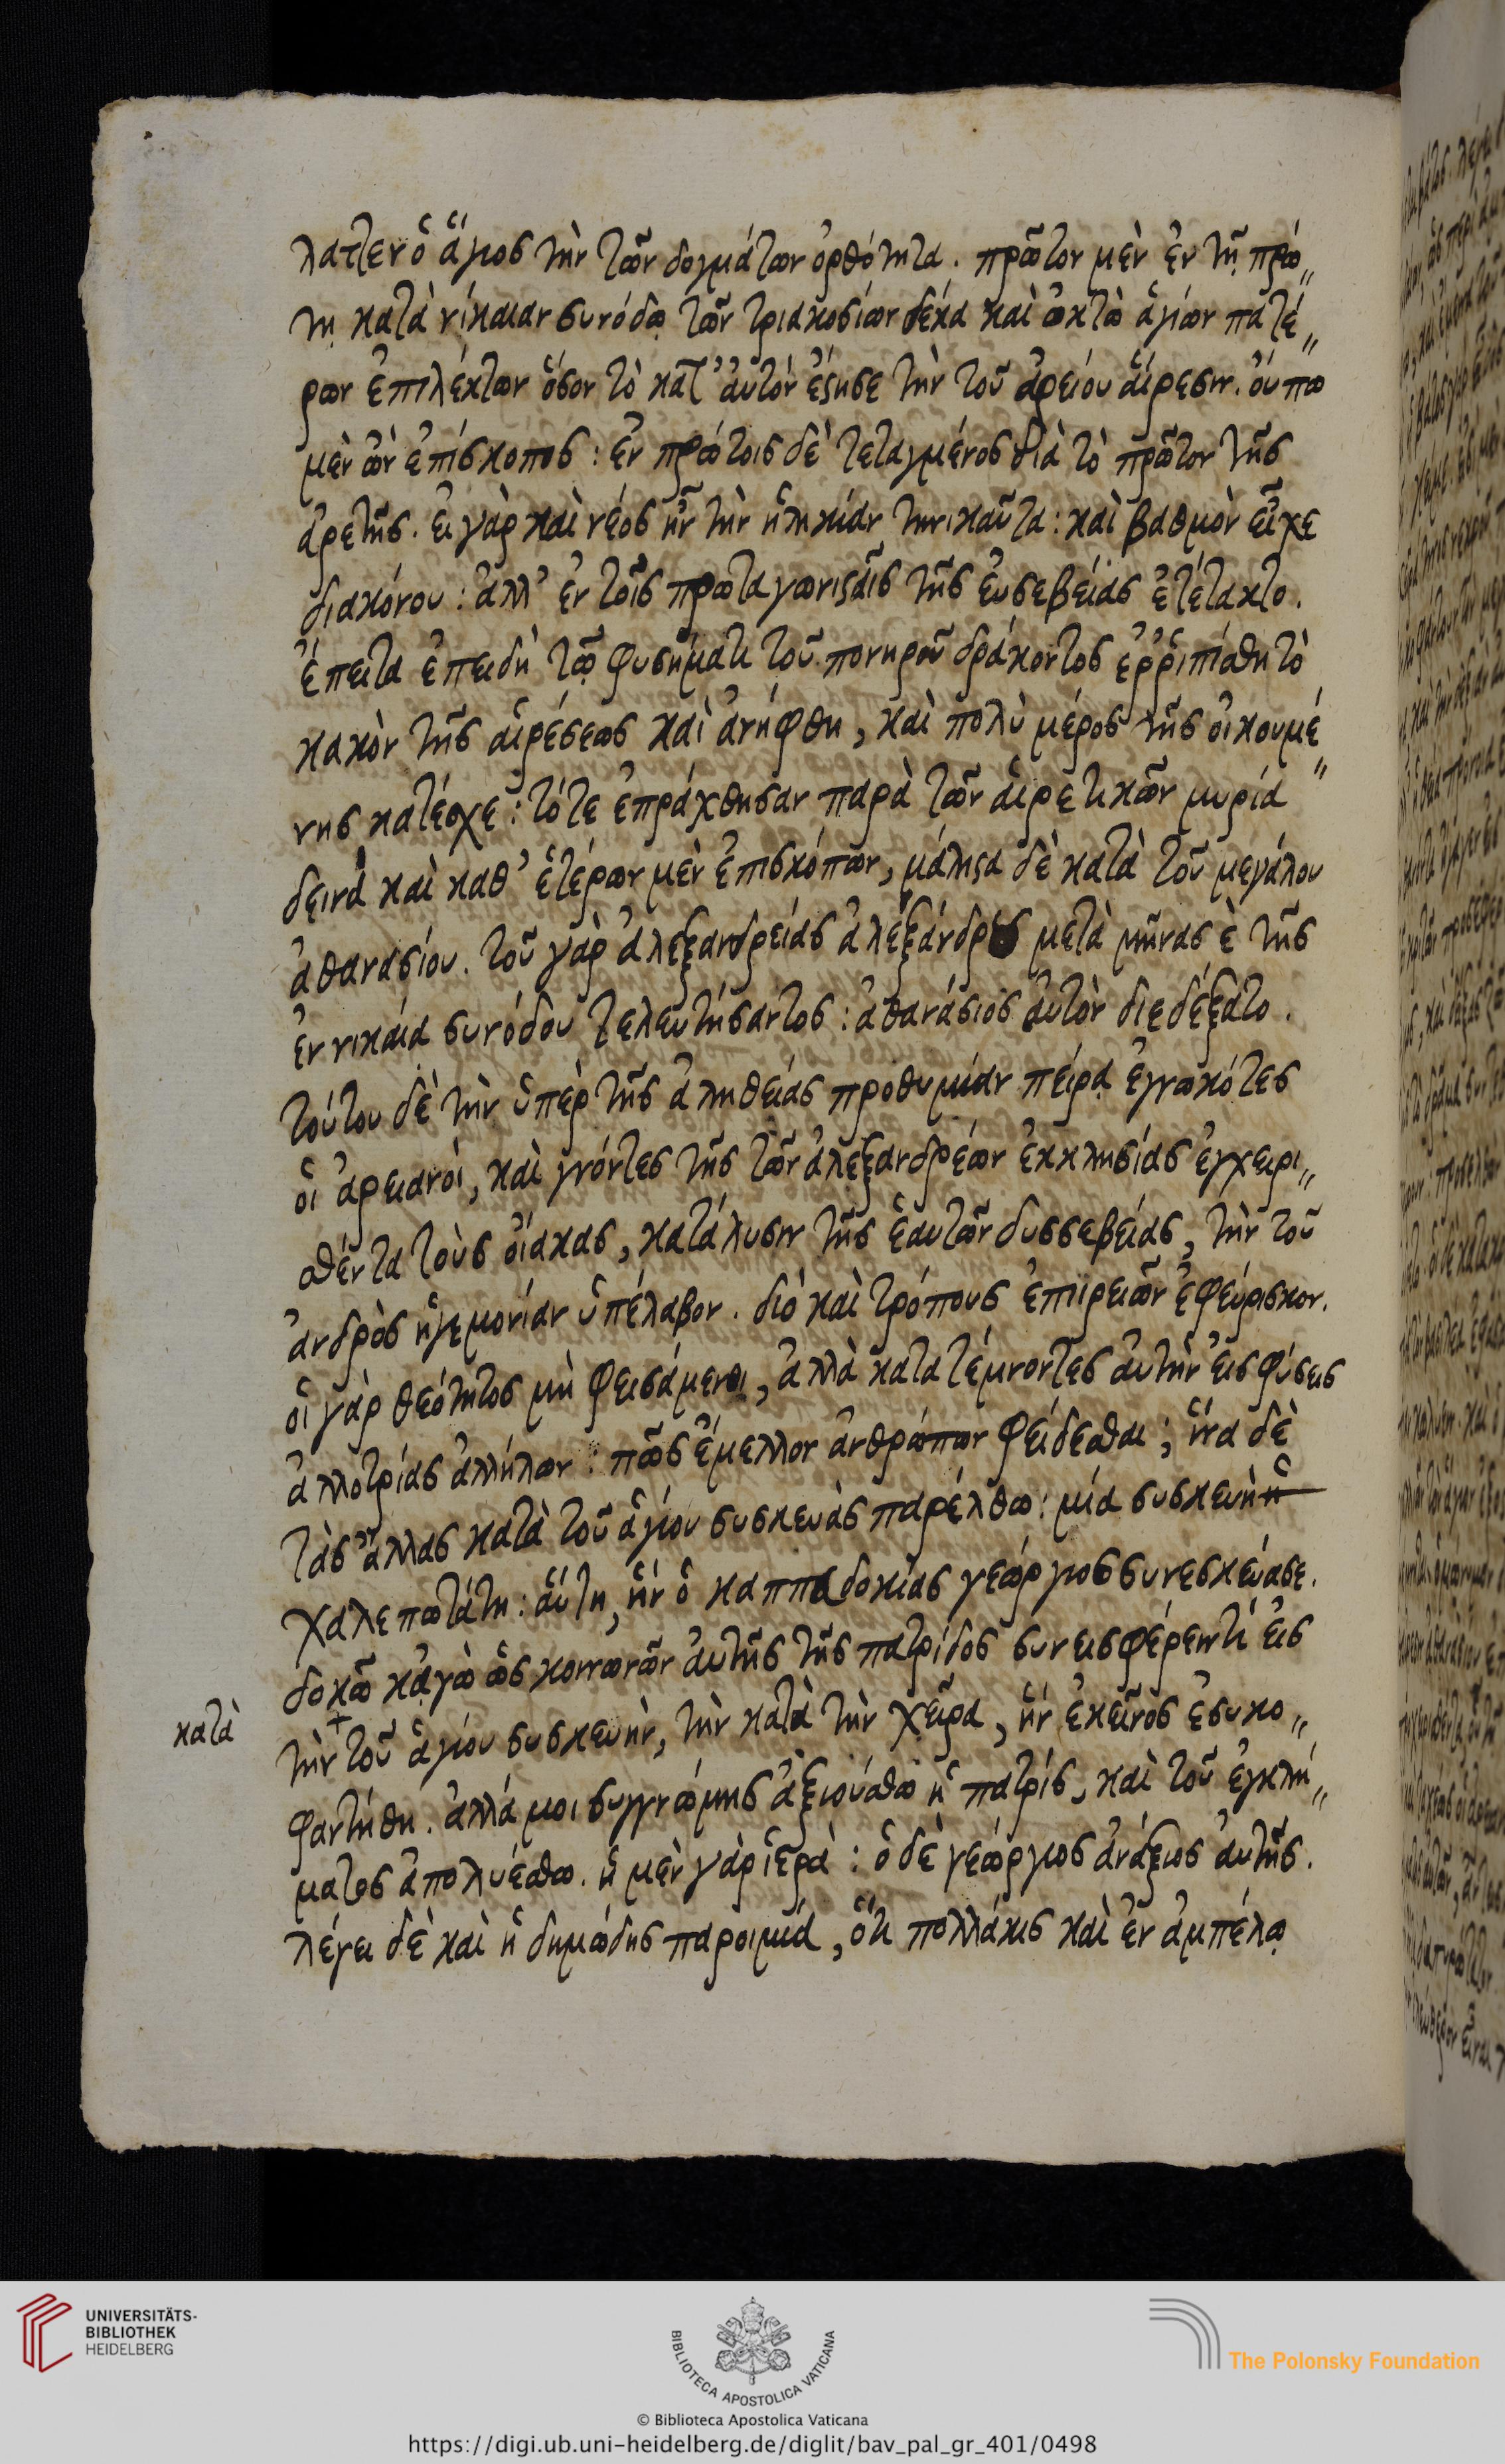 λαττεν ὁ ἅγιος τὴν τῶν δογμάτων ὀρθότητα. πρῶτον μὲν ἐν τῇ πρώ„
τῃ κατὰ νίκαιαν συνόδῳ τῶν τριακοσίων δέκα καὶ ὀκτὼ ἁγίων πατέ„
ρων ἐπιλέκτων ὅσον τὸ κατ' ἀυτὸν ἔϛησε τὴν τοῦ ἀρείου ἅιρεσιν. ὄυπω
μὲν ὢν ἐπίσκοπος: ἐν πρώτοις δὲ τεταγμένος διὰ τὸ πρῶτον τῆς
ἀρετῆς. ει γὰρ καὶ νέος ἦν τὴν ἡλικίαν τηνικαῦτα: καὶ βαθμὸν εἶχε
διακόνου: ἀλλ' ἐν τοῖς πρωταγωνιϛαῖς τῆς ἐυσεβείας ἐτέτακτο.
ἔπειτα ἐπειδὴ τῷ φυσήματι τοῦ πονηροῦ δράκοντος ἐῤῥιπίσθη τὸ
κακὸν τῆς αἱρέσεως καὶ ἀνήφθη, καὶ πολὺ μέρος τῆς οἰκουμέ„
νης κατέσχε: τότε ἐπράχθησαν παρὰ τῶν αἱρετικῶν μυρία
δεινὰ καὶ καθ' ἑτέρων μὲν ἐπισκόπων, μάλιϛα δὲ κατὰ τοῦ μεγάλου
ἀθανασίου. τοῦ γὰρ ἀλεξανδρείας ἀλεξάνδρου μετὰ μῆνας ὲ τῆς
ἐν νικαία συνόδου τελευτήσαντος: ἀθανάσιος ἀυτὸν διεδέξατο.
τούτου δὲ τὴν ὑπὲρ τῆς ἀληθείας προθυμίαν πείρᾳ ἐγνωκότες
οἱ ἀρειανοὶ, καὶ γνόντες τῆς τῶν ἀλεξανδρέων ἐκκλησίας ἐγχειρι„
σθέντα τοὺς οἴακας, κατάλυσιν τῆς ἑαυτῶν δυσσεβείας, τὴν τοῦ
ἀνδρὸς ἡγεμονίαν ὑπέλαβον. διὸ καὶ τρόπους ἐπηρειῶν ἐφεύρισκον.
οἱ γὰρ θεότητος μὴ φεισάμενοι, ἀλλὰ κατατέμνοντες ἀυτὴν εἰς φύσεις
ἀλλοτρίας ἀλλήλων: πῶς ἔμελλον ἀνθρώπων φείδεσθαι; ἵνα δὲ
τὰς ἄλλας κατὰ τοῦ ἁγίου συσκευὰς παρέλθω: μία συσκευὴ ἡ
χαλεπωτάτη: ἅυτη, ἣν ὁ καππαδοκίας γεώργιος συνεσκεύασε.
δοκῶ κἀγὼ ὡς κοινωνῶν ἀυτῆς τῆς πατρίδος συνεισφέρειν τὶ εἰς
κατὰ
τὴν + τοῦ ἁγίου συσκευὴν, τὴν κατὰ τὴν χεῖρα, ἣν ἐκεῖνος ἐσυκο„
φαντήθη. ἀλλά μοι συγγνώμης ἀξιούσθω ἡ πατρὶς, καὶ τοῦ ἐγκλή„
ματος ἀπολυέσθω. ἡ μὲν γὰρ ἱερὰ: ὁ δὲ γεώργιος ἀνάξιος ἀυτῆς.
λέγει δὲ καὶ ἡ δημώδης παροιμία, ὅτι πολλάκις καὶ ἐν ἀμπέλῳ
UNIVERSITÄTS-
BIBLIOTHEK
HEIDELBERG
BIBLIOTECA APOSTOLICA VATICANA
The Polonsky Foundation
© Biblioteca Apostolica Vaticana
https://digi.ub.uni-heidelberg.de/diglit/bav_pal_gr_401/0498